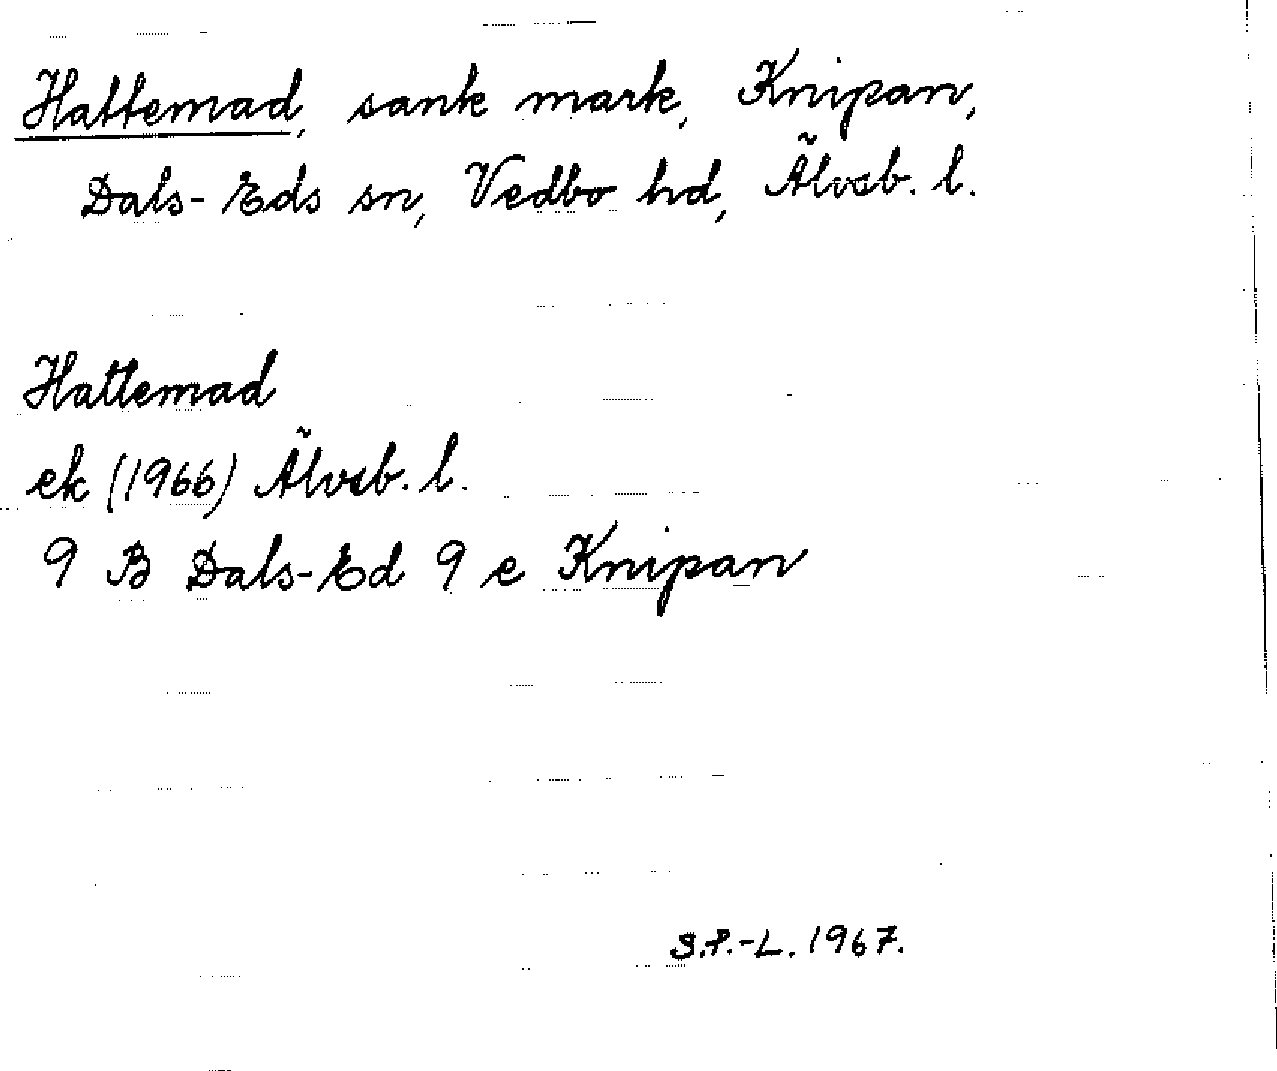 Hattemad, sank mark, Knipan,
Dals-Eds sn, Vedbo hd, Älvsb. l.
Hattemad
ek (1966) Älvsb. l.
9 B Dals-Ed 9 e Knipan
S.P.-L. 1967.